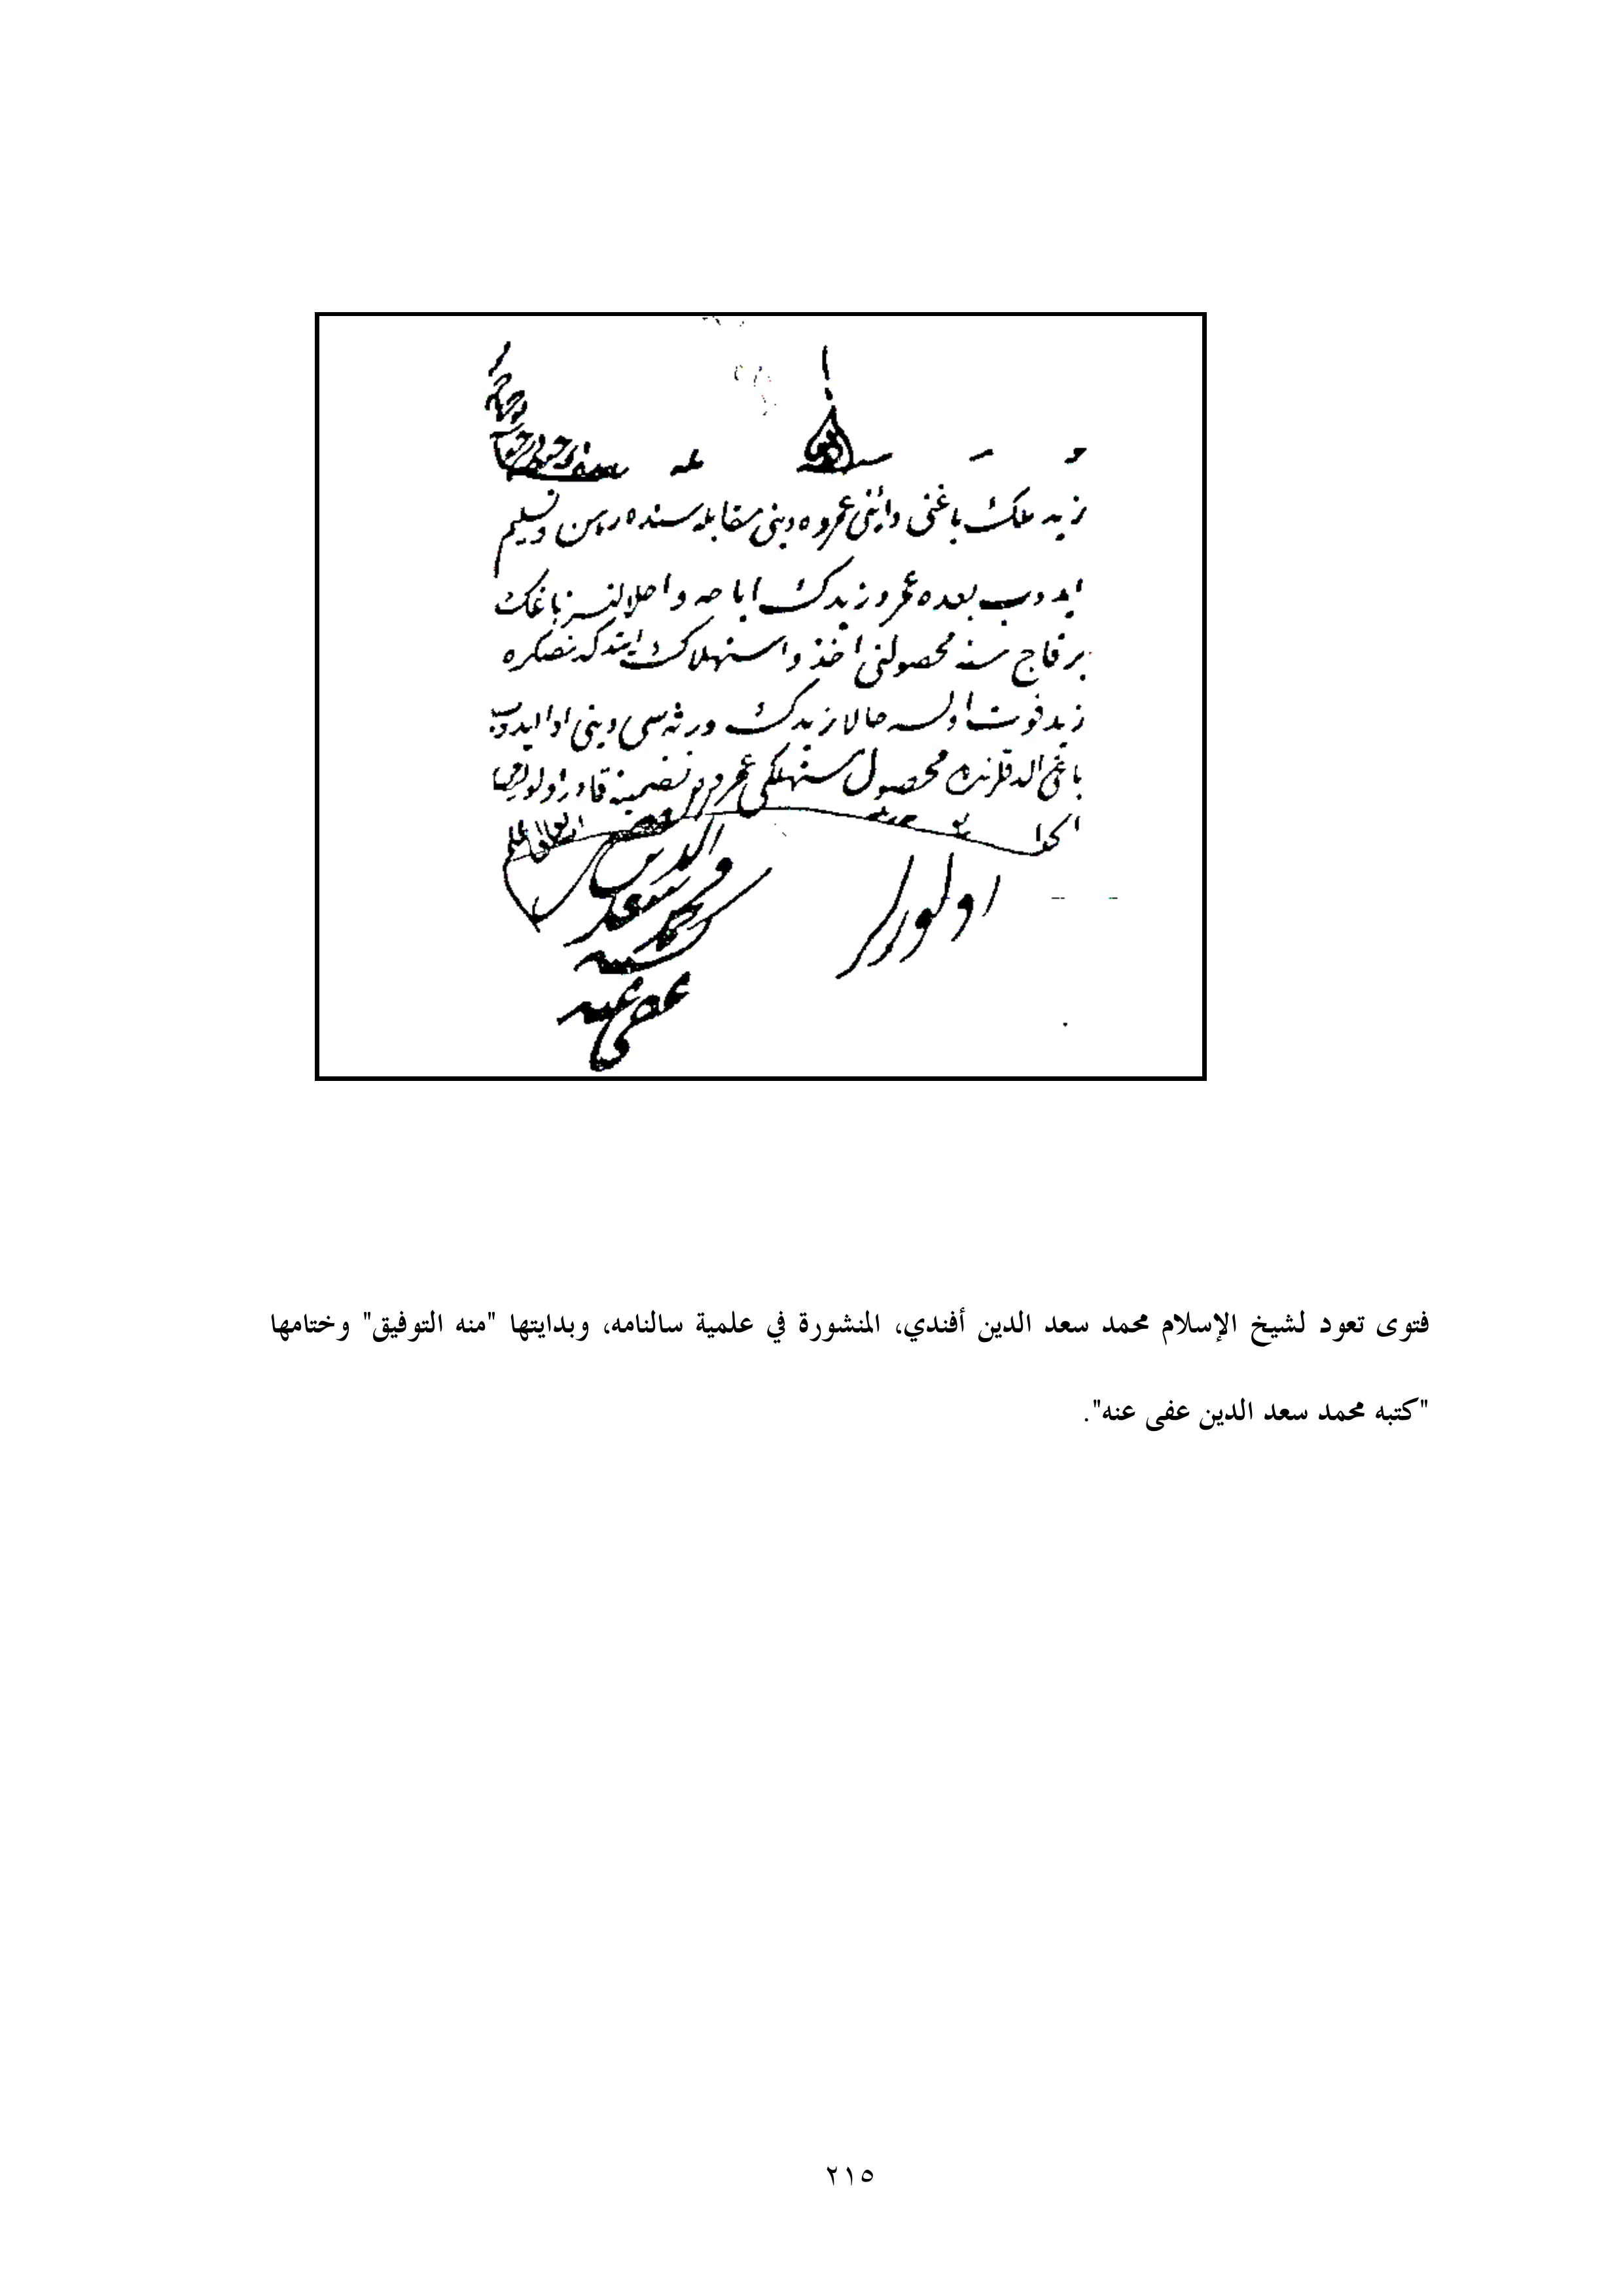 زید ملک باغنی دائنی عمروه دینی مقابله سنده رهن و تسلیم
ایدوب بعده عمرو زیدک اباحه و احلالنسز باغک
بر قاچ سنه محصولنی اخذ و استهلاک ایتدکدنصکره
زید فوت اولسه حالا زیدک ورثه سی دینی ادا ایدوب
باغی الدقلرنده محصول مستهلکی عمرو تضمینه قادر اولورلرمی
الجواب
اولورلر
كتبه محمد سعد الدين
عفی عنه
فتوى تعود لشيخ الإسلام محمد سعد الدين أفندي، المنشورة في علمية سالنامه، وبدايتها "منه التوفيق" وختامها
"كتبه محمد سعد الدين عفى عنه".
٢١٥